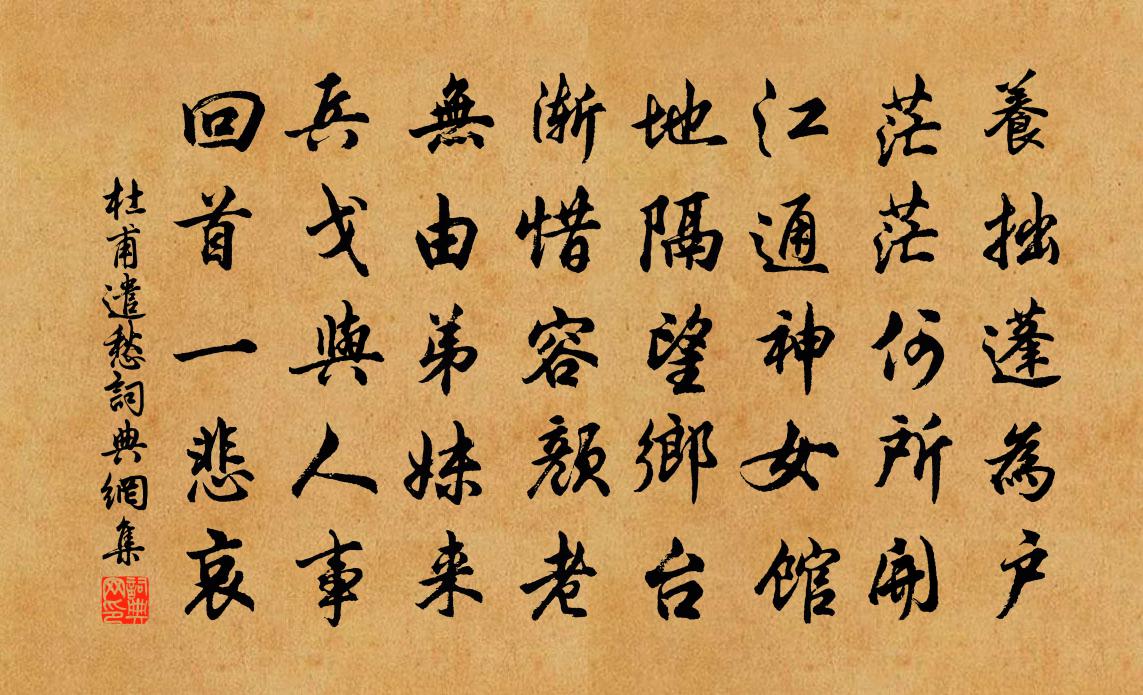 養拙蓬為户
茫茫何所開
江通神女馆
地隔望鄉台
渐惜容颜老
無由弟妹来
兵戈與人事
回首一悲哀
杜甫遣愁詞典網集
詞典网印